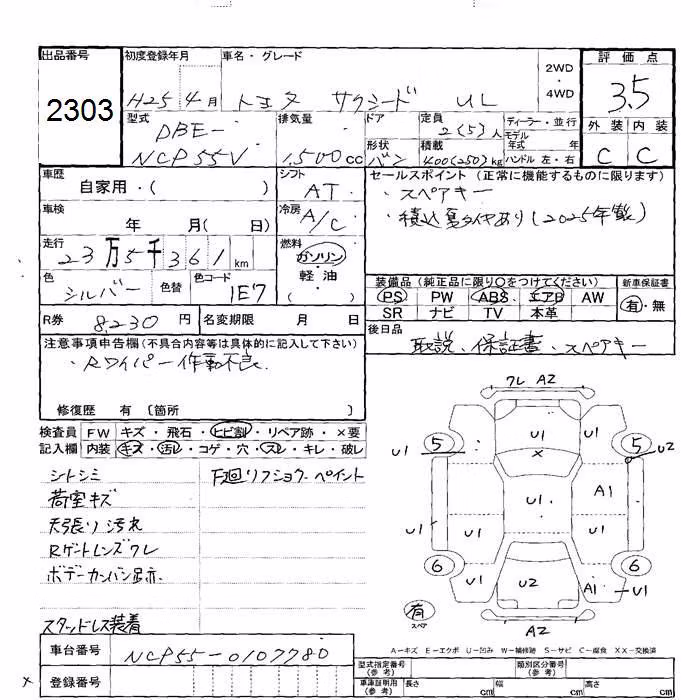 出品番号 初度登録年月 車名・グレード 評価点
2303 H25 4月 トヨタ サクシード UL 2WD・4WD 3.5
型式 排気量 ドア 定員 ディーラー・並行 外装 内装
DBE- 2(5)人 モデル年式 年
NCP55V 1,500cc 形状 バン 積載 400(250)kg ハンドル 左・右 C C
車歴 シフト セールスポイント (正常に機能するものに限ります)
自家用・( ) AT ・スペアキー
車検 年 月( 日) 冷房 A/C (2025年製)
走行 23万5千361km 燃料 ガソリン・軽油 ( )
色 シルバー 色替 色コード 1E7
装備品 (純正品に限り○をつけてください) 新車保証書
PS PW ABS エアB AW 有・無
SR ナビ TV 本革
R券 8,230円 名変期限 月 日 後日品
取説、保証書、スペアキー
注意事項申告欄 (不具合内容等は具体的に記入して下さい)
・Rワイパー作動不良
修復歴 有 〔箇所 〕
検査員 FW キズ・飛石・ヒビ割・リペア跡・×要
記入欄 内装 キズ・汚レ・コゲ・穴・スレ・キレ・破レ
シトシミ 下廻リフショウ・ペイント
荷室キズ
天張り汚れ
Rゲートレンズワレ
ボデーカンバン跡
スタッドレス装着
ワレ A2
U1 5 U1 U1 5 U2
×
U1 A1
U1 U1 U1
6 6
U1 U2 A1 U1
有 スペア A2
A-キズ E-エクボ U-凹み W-補修跡 S-サビ C-腐食 XX-交換済
車台番号 NCP55-0107780
× 登録番号
型式指定番号 (参考) 類別区分番号 (参考)
車庫証明用 (参考) 長さ cm 幅 cm 高さ cm